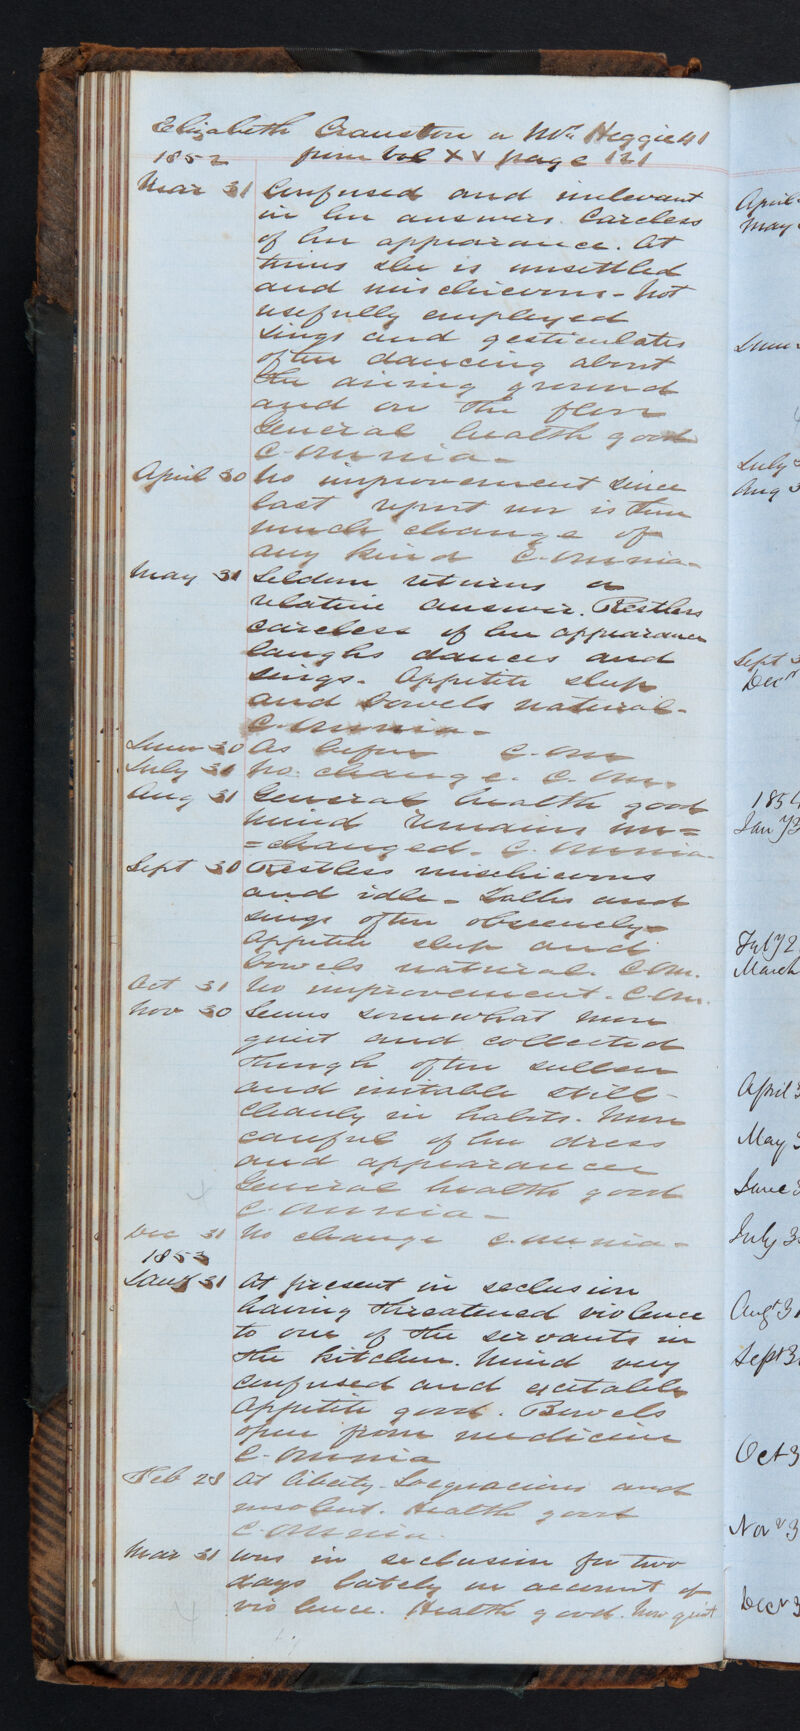 Elizabeth Cranston or McHeggie 41
1852 from Vol XV page 121
Mar 31 Confused and irrelevant
in her answers. Careless
of her appearance. At
times she is unsettled
and mischievous - Not
usefully employed
sings and gesticulates
often dancing about
the airing ground
and on the floor
General health good
C. Omnia -
April 30 No improvement since
last report nor is there
much change of
any kind C. Omnia -
May 31 Seldom returns a
relative answer. Restless
careless of her appearance
laughs dances and
sings. Appetite sleep
and bowels natural -
C. Omnia -
June 30 As before C. Om
July 31 No change. C. Om.
Aug 31 General health good
mind remains un=
=changed. C. Omnia.
Sept 30 Restless mischievous
and idle - Talks and
sings often obscenely -
Appetite sleep and
bowels natural. C. Om.
Oct 31 No improvement. C. Om.
Nov 30 Seems somewhat more
quiet and collected
though often sullen
and irritable still -
Cleanly in habits. More
careful of her dress
and appearance
General health good
C. Omnia -
Dec 31 No change C. Omnia -
1853
Jany 31 At present in seclusion
having threatened violence
to one of the servants in
the kitchen. Mind very
confused and excitable
Appetite good. Bowels
open from medicine
C. Omnia
Feb 28 At liberty. Loquacious and
insolent. Health good
C. Omnia.
Mar 31 Was in seclusion for two
days lately on account of
violence. Health good. Now quiet
April
May
June
July
Aug 3
Sept 3
Decr
1854
Jany 3
Feby 2
March
April 3
May 3
June 3
July 3
Augt 31
Sept 3
Oct 3
Novr 3
Decr 3